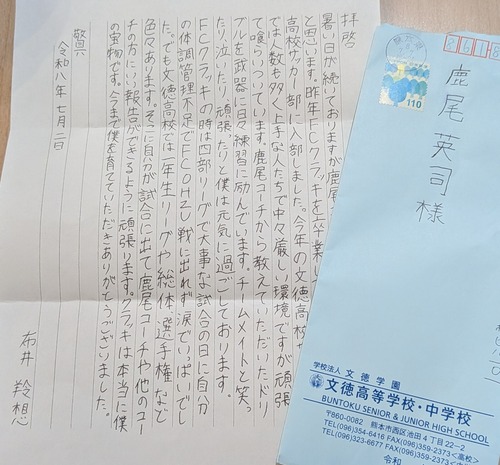 拝啓
暑い日が続いておりますが鹿尾
と思います。昨年FCクラッキを卒業し
高校サッカー部に入部しました。今年の文徳高校サ
では人数も多く上手な人たちで中々厳しい環境ですが頑張
て喰らいついています。鹿尾コーチから教えていただいたドリ
ブルを武器に日々練習に励んでいます。チームメイトと笑っ
たり泣いたり頑張たりと僕は元気に過ごしております。
FCクラッキの時は四部リーグで大事な試合の日に自分
の体調管理不足でFCOHZU戦に出れず涙でいっぱいでし
た。でも文徳高校では一年生リーグや総体選手権など
色々あります。そこに自分が試合に出て鹿尾コーチや他のコー
チの方にいい報告ができるように頑張ります。クラッキは本当に僕
の宝物です。今まで僕を育てていただきありがとうございました。
敬具
令和八年七月二日
布井 羚想
鹿尾英司様
110
学校法人 文徳学園
文徳高等学校・中学校
BUNTOKU SENIOR & JUNIOR HIGH SCHOOL
〒860-0082 熊本市西区池田4丁目22-2
TEL(096)354-6416 FAX(096)359-2373<高校>
TEL(096)323-6677 FAX(096)359-2373<中学>
令和